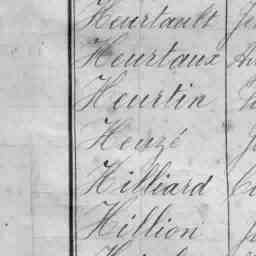 Heurtault
Heurtaux
Heurtin
Heuzé
Hilliard
Hillion